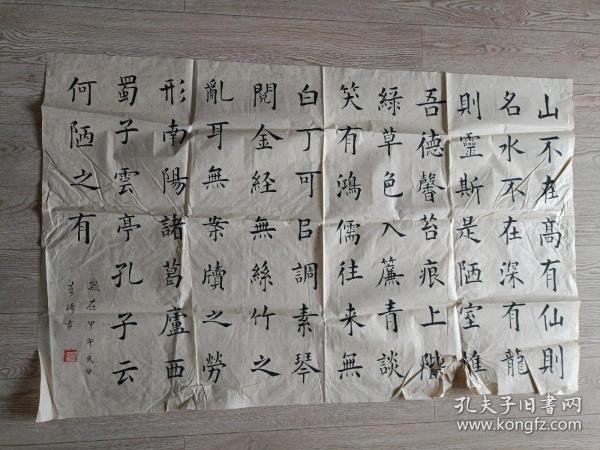 山不在髙有仙則
名水不在深有龍
則靈斯是陋室惟
吾德馨苔痕上階
綠草色入簾青談
笑有鴻儒往来無
白丁可㠯調素琴
閱金経無絲竹之
亂耳無案牘之勞
形南陽諸葛廬西
蜀子雲亭孔子云
何陋之有
歲在甲午元日
孔夫子旧书网
www.kongfz.com